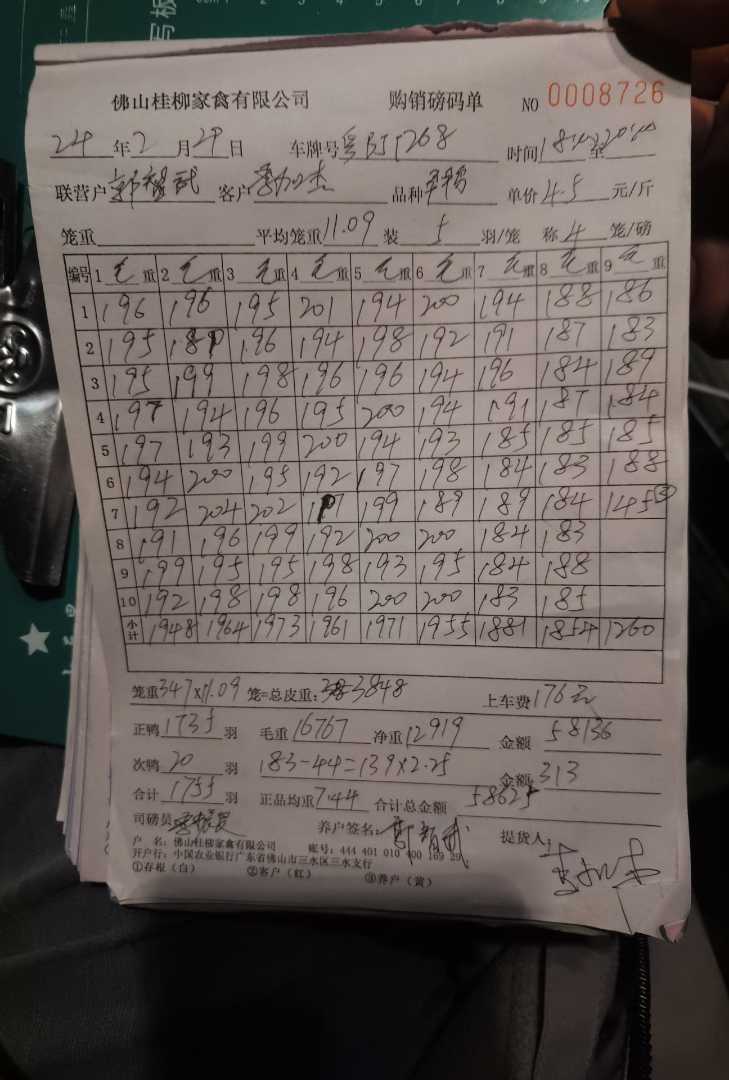 佛山桂柳家禽有限公司 购销磅码单 NO 0008726
24年2月29日 车牌号 时间18:00至20:00
联营户 客户 品种 单价4.5元/斤
笼重 平均笼重11.09 装5羽/笼 称4笼/磅
编号 1毛重 2毛重 3毛重 4毛重 5毛重 6毛重 7毛重 8毛重 9毛重
1 196 196 195 201 194 200 194 188 186
2 195 189 196 194 198 192 191 187 183
3 195 199 198 196 196 194 196 184 189
4 197 194 196 195 200 194 191 187 184
5 197 193 199 200 194 193 185 185 185
6 194 200 195 192 197 198 184 183 188
7 192 204 202 197 199 189 189 184 145③
8 191 196 199 192 200 200 184 183
9 199 195 195 198 193 195 184 188
10 192 198 198 196 200 200 183 185
小计 1948 1964 1973 1961 1971 1955 1881 1854 1260
笼重347×11.09 笼=总皮重:3848 上车费176元
正鸭1735羽 毛重16767 净重12919 金额58136
次鸭20羽 183-44=139×2.25 金额:313
合计1755羽 正品均重7.44 合计总金额58625
司磅员 养户签名: 提货人:
户 名:佛山桂柳家禽有限公司 账号:444 401 010 400 169 29
开户行:中国农业银行广东省佛山市三水区三水支行
①存根(白) ②客户(红) ③养户(黄)